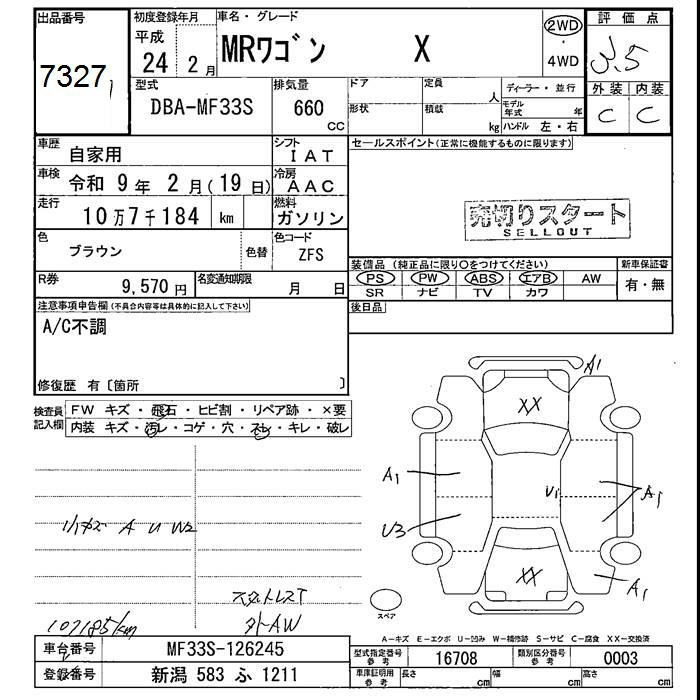 出品番号
7327
初度登録年月
平成
24 2月
車名・グレード
MRワゴン X
2WD
・
4WD
評価点
3.5
外装 内装
C C
型式
DBA-MF33S
排気量
660
CC
ドア
形状
定員
人
積載
kg
ディーラー・並行
モデル年式 年
ハンドル 左・右
車歴
自家用
シフト
IAT
車検
令和 9年 2月(19日)
冷房
AAC
走行
10万7千184 km
燃料
ガソリン
色
ブラウン
色替
色コード
ZFS
R券
9,570円
名変通知期限
月 日
セールスポイント(正常に機能するものに限ります)
売切りスタート
SELLOUT
装備品(純正品に限り○をつけてください)
PS PW ABS エアB AW
SR ナビ TV カワ
新車保証書
有・無
後日品
注意事項申告欄(不具合内容等は具体的に記入して下さい)
A/C不調
修復歴 有〔箇所 〕
検査員記入欄
FW キズ・飛石・ヒビ割・リペア跡・×要
内装 キズ・汚レ・コゲ・穴・スレ・キレ・破レ
A U W2
107185km
スタットレスT
外AW
A1
XX
A1
U1
A1
U3
XX
A1
スペア
A-キズ E-エクボ U-凹み W-補修跡 S-サビ C-腐食 XX-交換済
車台番号
MF33S-126245
登録番号
新潟 583 ふ 1211
型式指定番号
参考
16708
類別区分番号
参考
0003
車庫証明用
参考
長さ cm
幅 cm
高さ cm